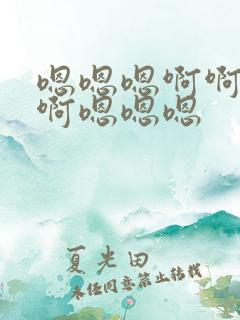 嗯嗯嗯啊啊
啊嗯嗯嗯
夏光田
未经同意禁止转载